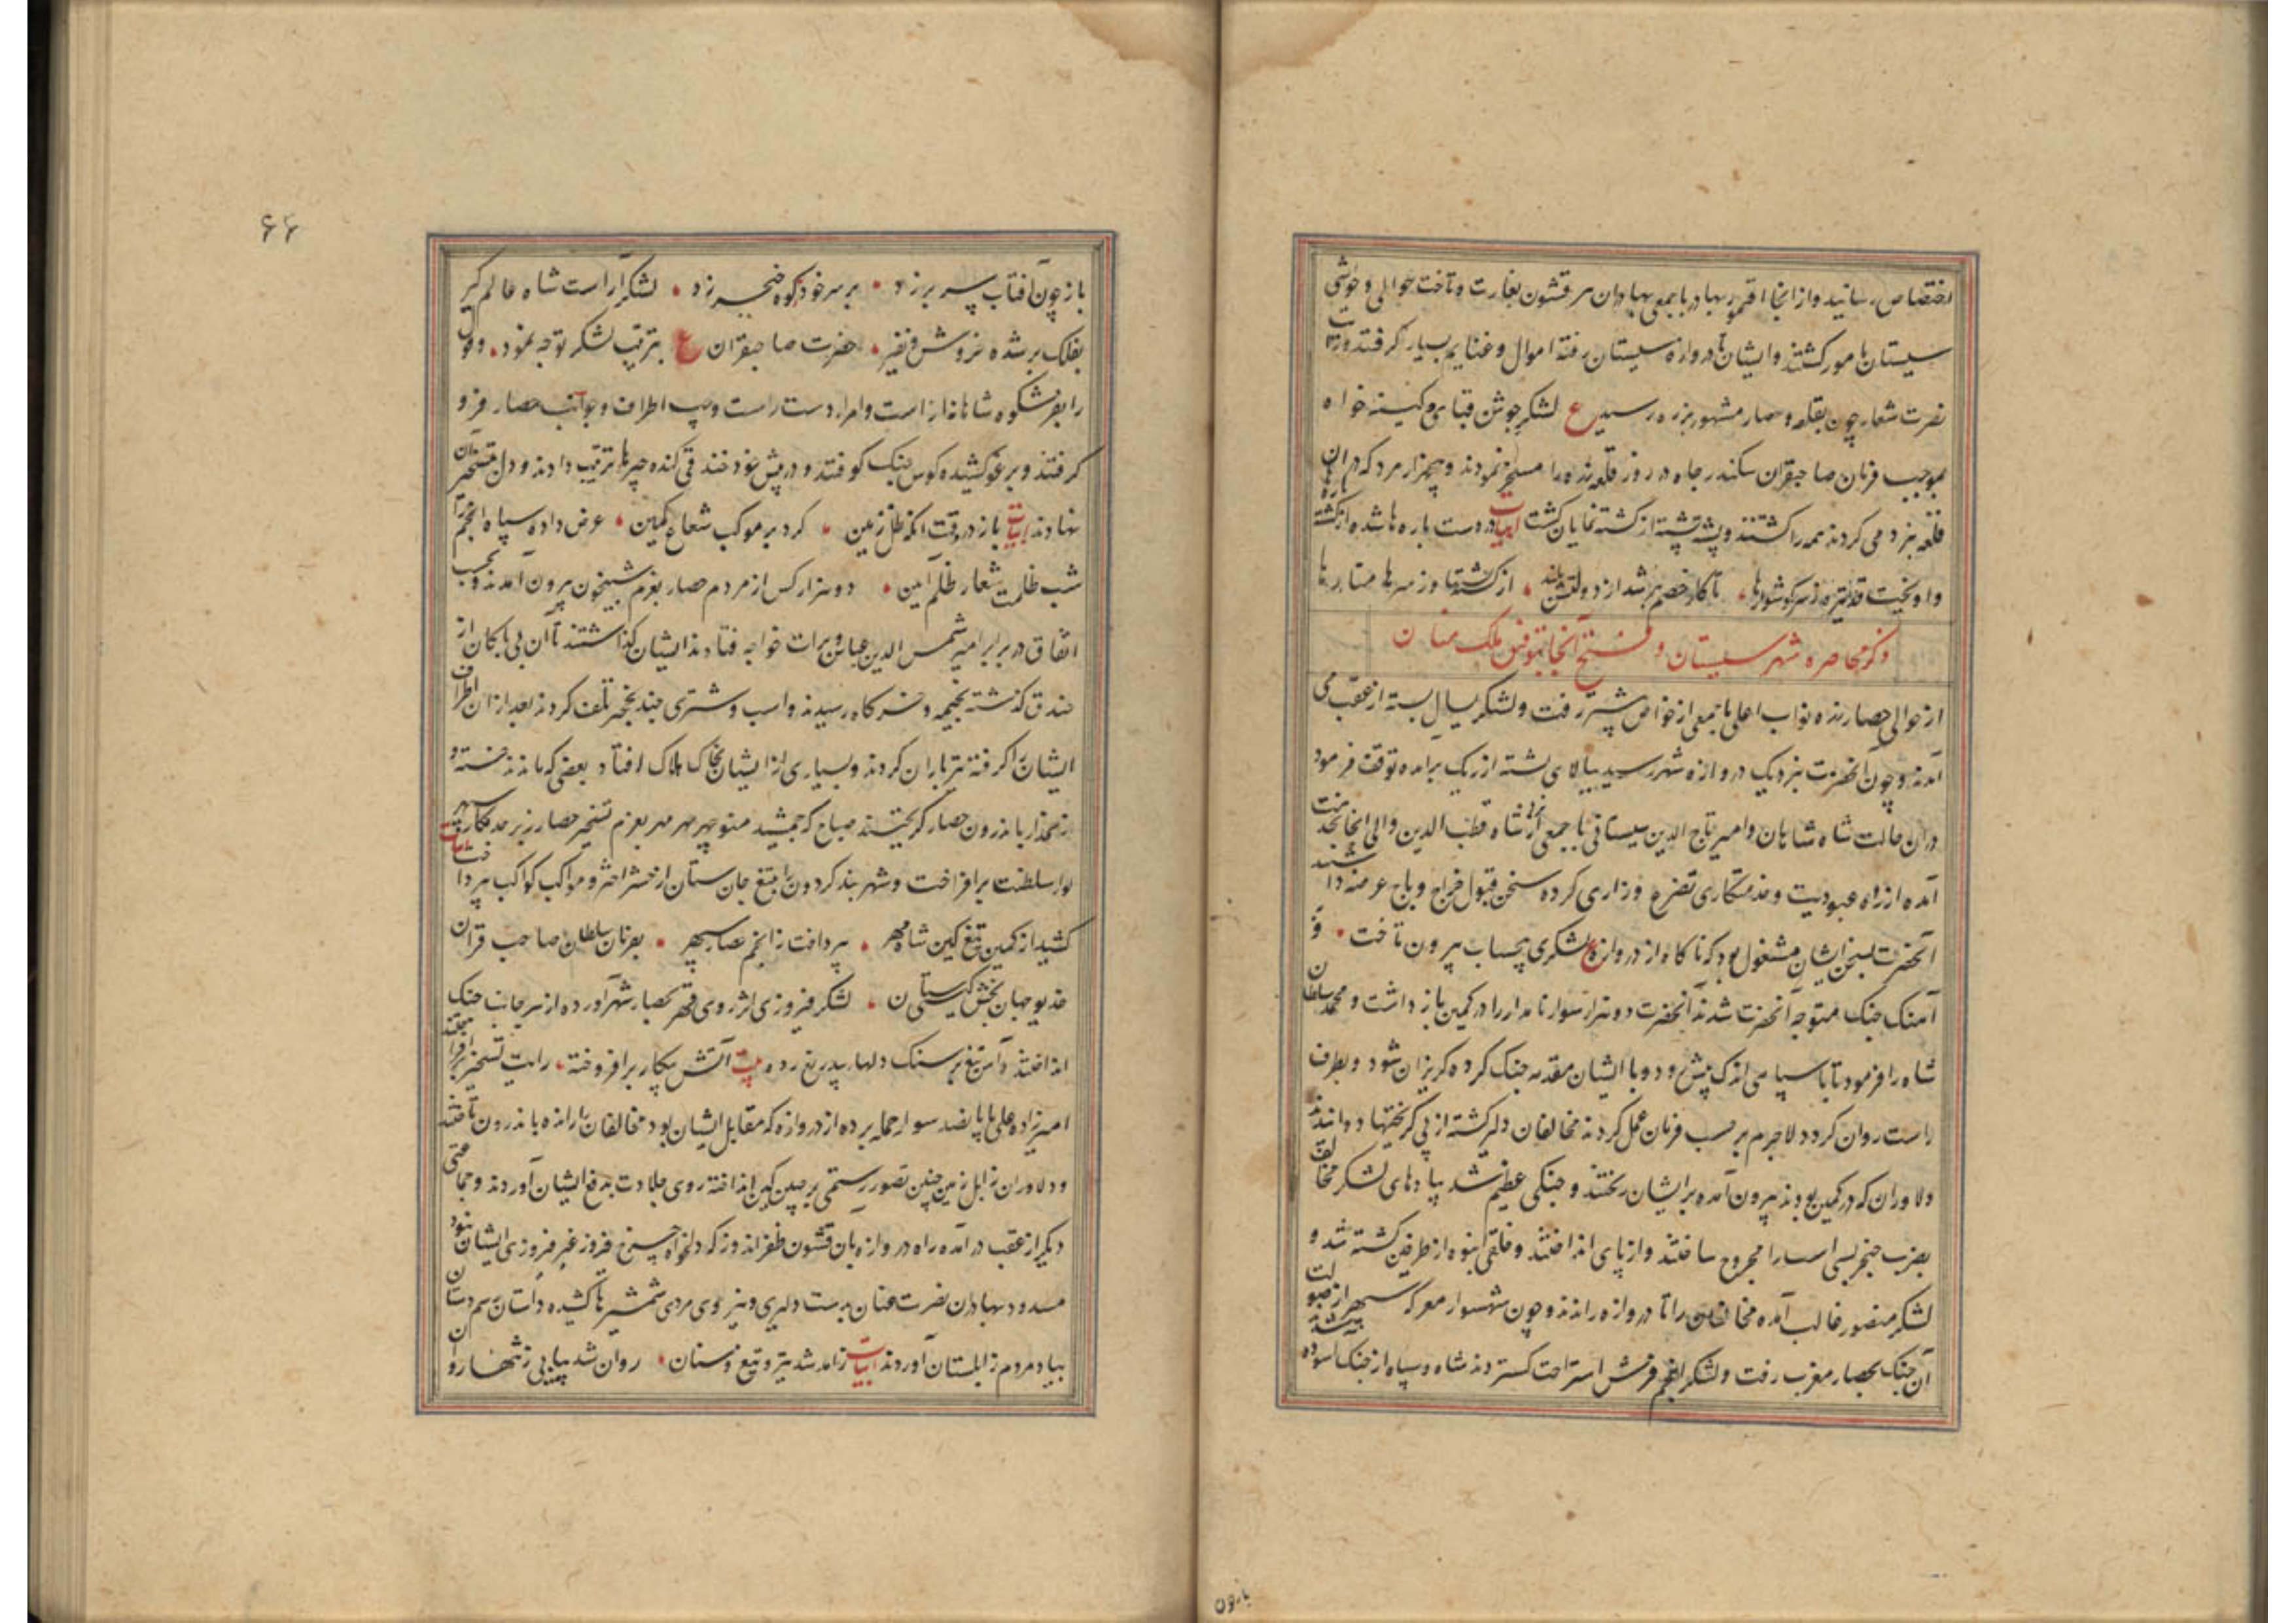 اختصاص رسانید و از انجا اقتمور بهادر با جمعی بهادران هر قشون بغارت و تاخت حوالی و حواشی
سیستان مامور کشتند و ایشان تا دروازه سیستان رفته اموال و غنایم بسیار کرفتند و رایت
نصرت شعار چون بقلعه و حصار مشهور بزره رسید ع لشکر جوشن قبای و کینه خواه
بموجب فرمان صاحبقران سکندر جاه در روز قلعه زره را مسخر نمودند و پنجهزار مرد که در ان
قلعه نبرد می کردند همه را کشتند و پشته پشته از کشته نمایان کشت ابیات در دست باره ها شده از کشته
واویخت ز سر کوشوارها تا کار خصم شد از دولتش بلند از کشتها وز سرها منارها
ذکر محاصره شهر سیستان و فتح آنجا بتوفیق ملک منان
از حوالی حصار زره نواب اعلی با جمعی از خواص پیشتر رفت و لشکر یسال بسته از عقب می
آمدند و چون آنحضرت بنزدیک دروازه شهر رسید ببالای پشته از ریک برامده توقف فرمود
دران حالت شاه شاهان و امیر تاج الدین سیستانی با جمعی از نزد شاه قطب الدین والی انجا بخدمت
آمده از راه عبودیت و خدمتکاری تضرع و زاری کرده سخن قبول خراج و باج عرضه داشتند
آنحضرت بسخن ایشان مشغول بود که ناکاه از دروازه ع لشکری بیحساب بیرون تاخت و
آهنک جنک متوجه آنحضرت شدند آنحضرت دو هزار سوار نامدار را در کمین باز داشت و محمد سلطان
شاه را فرمود تا با سپاهی اندک پیش رود و با ایشان مقدمه جنک کرده کریزان شود و بطرف
راست روان کردد لاجرم بر حسب فرمان عمل کردند مخالفان دلیر کشته از پی کریختها دوانیدند
دلاوران که در کمین بودند بیرون آمده بر ایشان ریختند و جنکی عظیم شد پیادهای لشکر مخالف
بضرب خنجر بسی اسب را مجروح ساختند و از پای انداختند و خلقی انبوه از طرفین کشته شد و
لشکر منصور غالب آمده مخالفان را تا دروازه راندند و چون شهسوار معرکه سپهر از صولت
آن جنک بحصار مغرب رفت و لشکر انجم فرش استراحت کستردند شاه و سپاه از جنک آسوده شدند
بارون
۶۶
باز چون آفتاب سپر بر زد بر سر خود کوه خنجر زد لشکر آراست شاه عالم کیر
بفلک بر شده خروش و نفیر حضرت صاحبقران ع بترتیب لشکر توجه نمود و قول
را بفر شکوه شاهانه اراست و امرا دست راست و چپ اطراف و جوانب حصار فرو
کرفتند و برغو کشیده کوس جنک کوفتند و در پیش خود خندقی کنده چپرها ترتیب دادند و دل بتسخیر آن
نهادند ابیات باز در وقت انکه ظل زمین کرد بر موکب شعاع کمین عرض داده سپاه انجم را
شب ظلمت شعار ظلم آیین دو هزار کس از مردم حصار بعزم شبیخون بیرون آمدند و بحسب
اتفاق در برابر امیر شمس الدین عباس و برات خواجه فتادند ایشان کذاشتند تا آن بی باکان از
خندق کذشته بخیمه و خرکاه رسیدند و اسب و شتری چند بخنجر تلف کردند بعد از ان اطراف
ایشان را کرفته تیر باران کردند و بسیاری از ایشان بخاک هلاک افتاد بعضی که ماندند خسته و
زخمدار باندرون حصار کریختند صباح که جمشید منوچهر مهر بعزم تسخیر حصار زبرجد نکار سپهر ابیات
لوا سلطنت برافراخت و شهر بند کردون را بتیغ جان ستان از حشر اختر و مواکب کواکب بپرداخت
کشید از کمین تیغ کین شاه مهر بپرداخت ز انجم حصار سپهر بفرمان سلطان صاحب قران
خدیو جهان بخش کیتی ستان لشکر فیروزی اثر روی قهر بحصار شهر آورده از هر جانب جنک
انداختند و آهن تیغ بر سنک دلها بیدریغ زده بیت آتش پیکار برافروخته رایت تسخیر برافراختند
امیرزاده علی با پانصد سوار حمله برده از دروازه که مقابل ایشان بود مخالفان را رانده باندرون تاختند
و دلاوران زابل زمین چین تصور رستمی بر جبین کین انداخته روی جلادت بدفع ایشان آوردند و جماعتی
دیکر از عقب درآمده راه دروازه بان قشون ظفر اندوز که دلخواه چرخ فیروز غیر فیروزی ایشان نبود
مسدود بهادران نصرت عنان بدست دلیری و نیروی مردی شمشیرها کشیده داستان رسم دستان
بیاد مردم زابلستان آوردند ابیات زامد شد تیر و تیغ و سنان روان شد پیاپی ز تنها روان